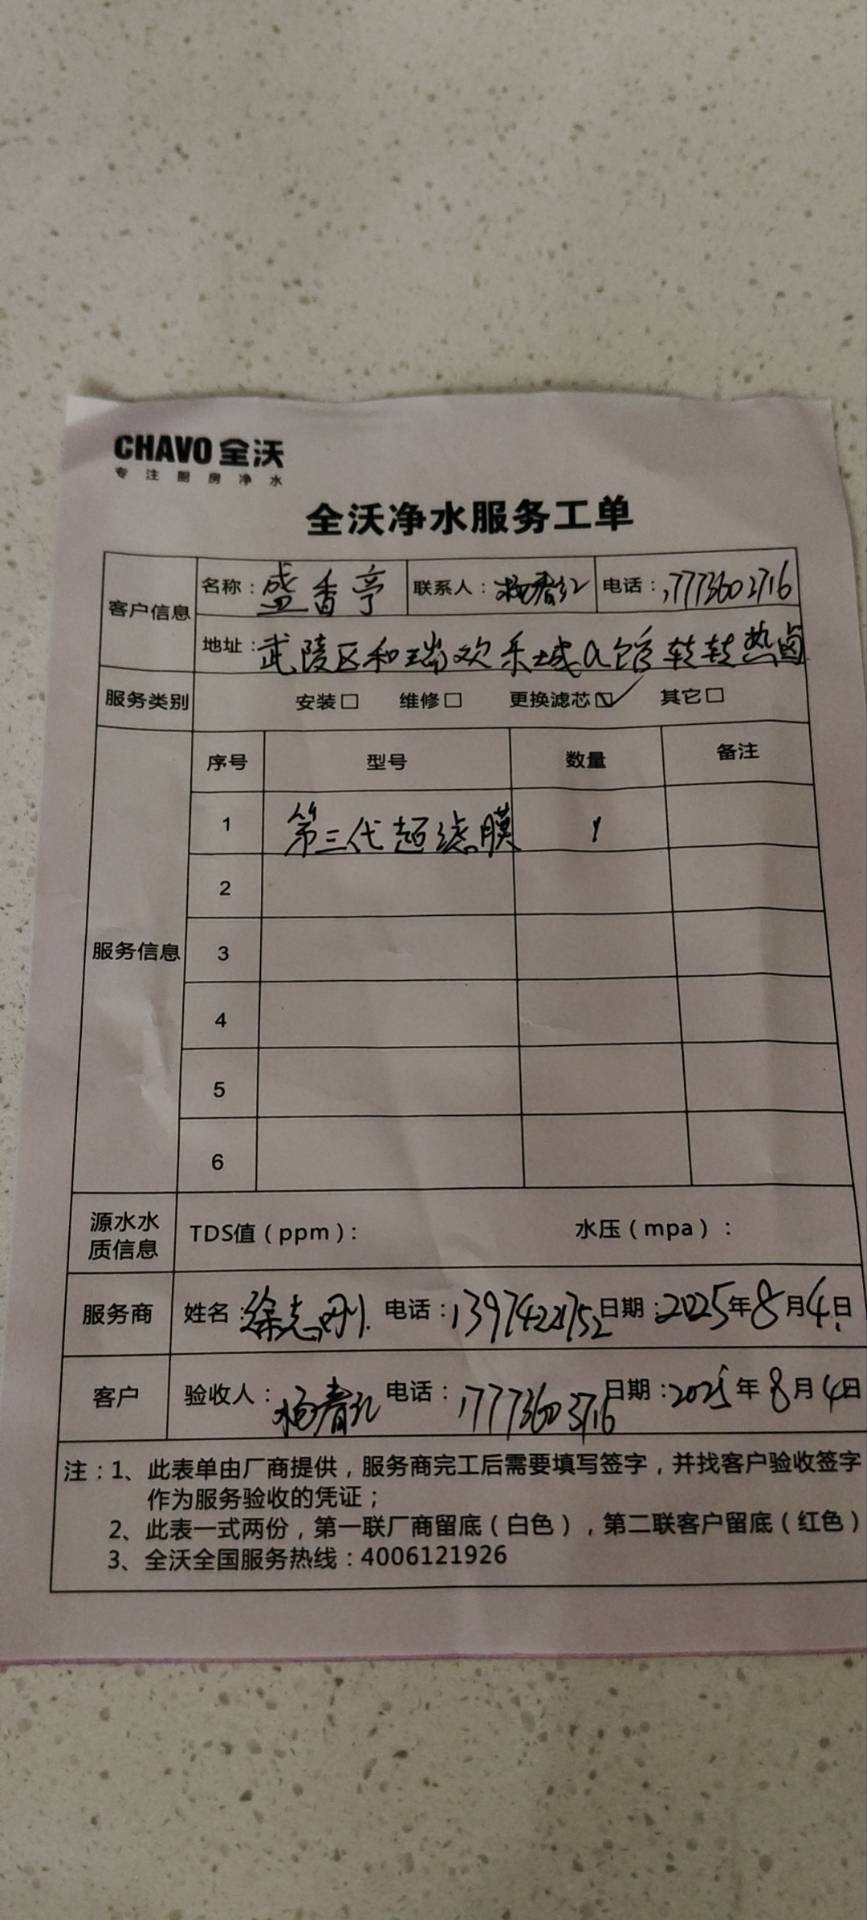 CHAVO 全沃
专注厨房净水
全沃净水服务工单
客户信息 名称：盛香亭 联系人：杨春红 电话：17773602716
地址：武陵区和瑞欢乐城a馆转转热卤
服务类别 安装□ 维修□ 更换滤芯☑ 其它□
服务信息 序号 型号 数量 备注
1 第三代超滤膜 1
2
3
4
5
6
源水水质信息 TDS值（ppm）： 水压（mpa）：
服务商 姓名：徐志刚 电话： 日期：2025年8月4日
客户 验收人：杨春红 电话：17773603716 日期：2025年8月4日
注：1、此表单由厂商提供，服务商完工后需要填写签字，并找客户验收签字
作为服务验收的凭证；
2、此表一式两份，第一联厂商留底（白色），第二联客户留底（红色）
3、全沃全国服务热线：4006121926